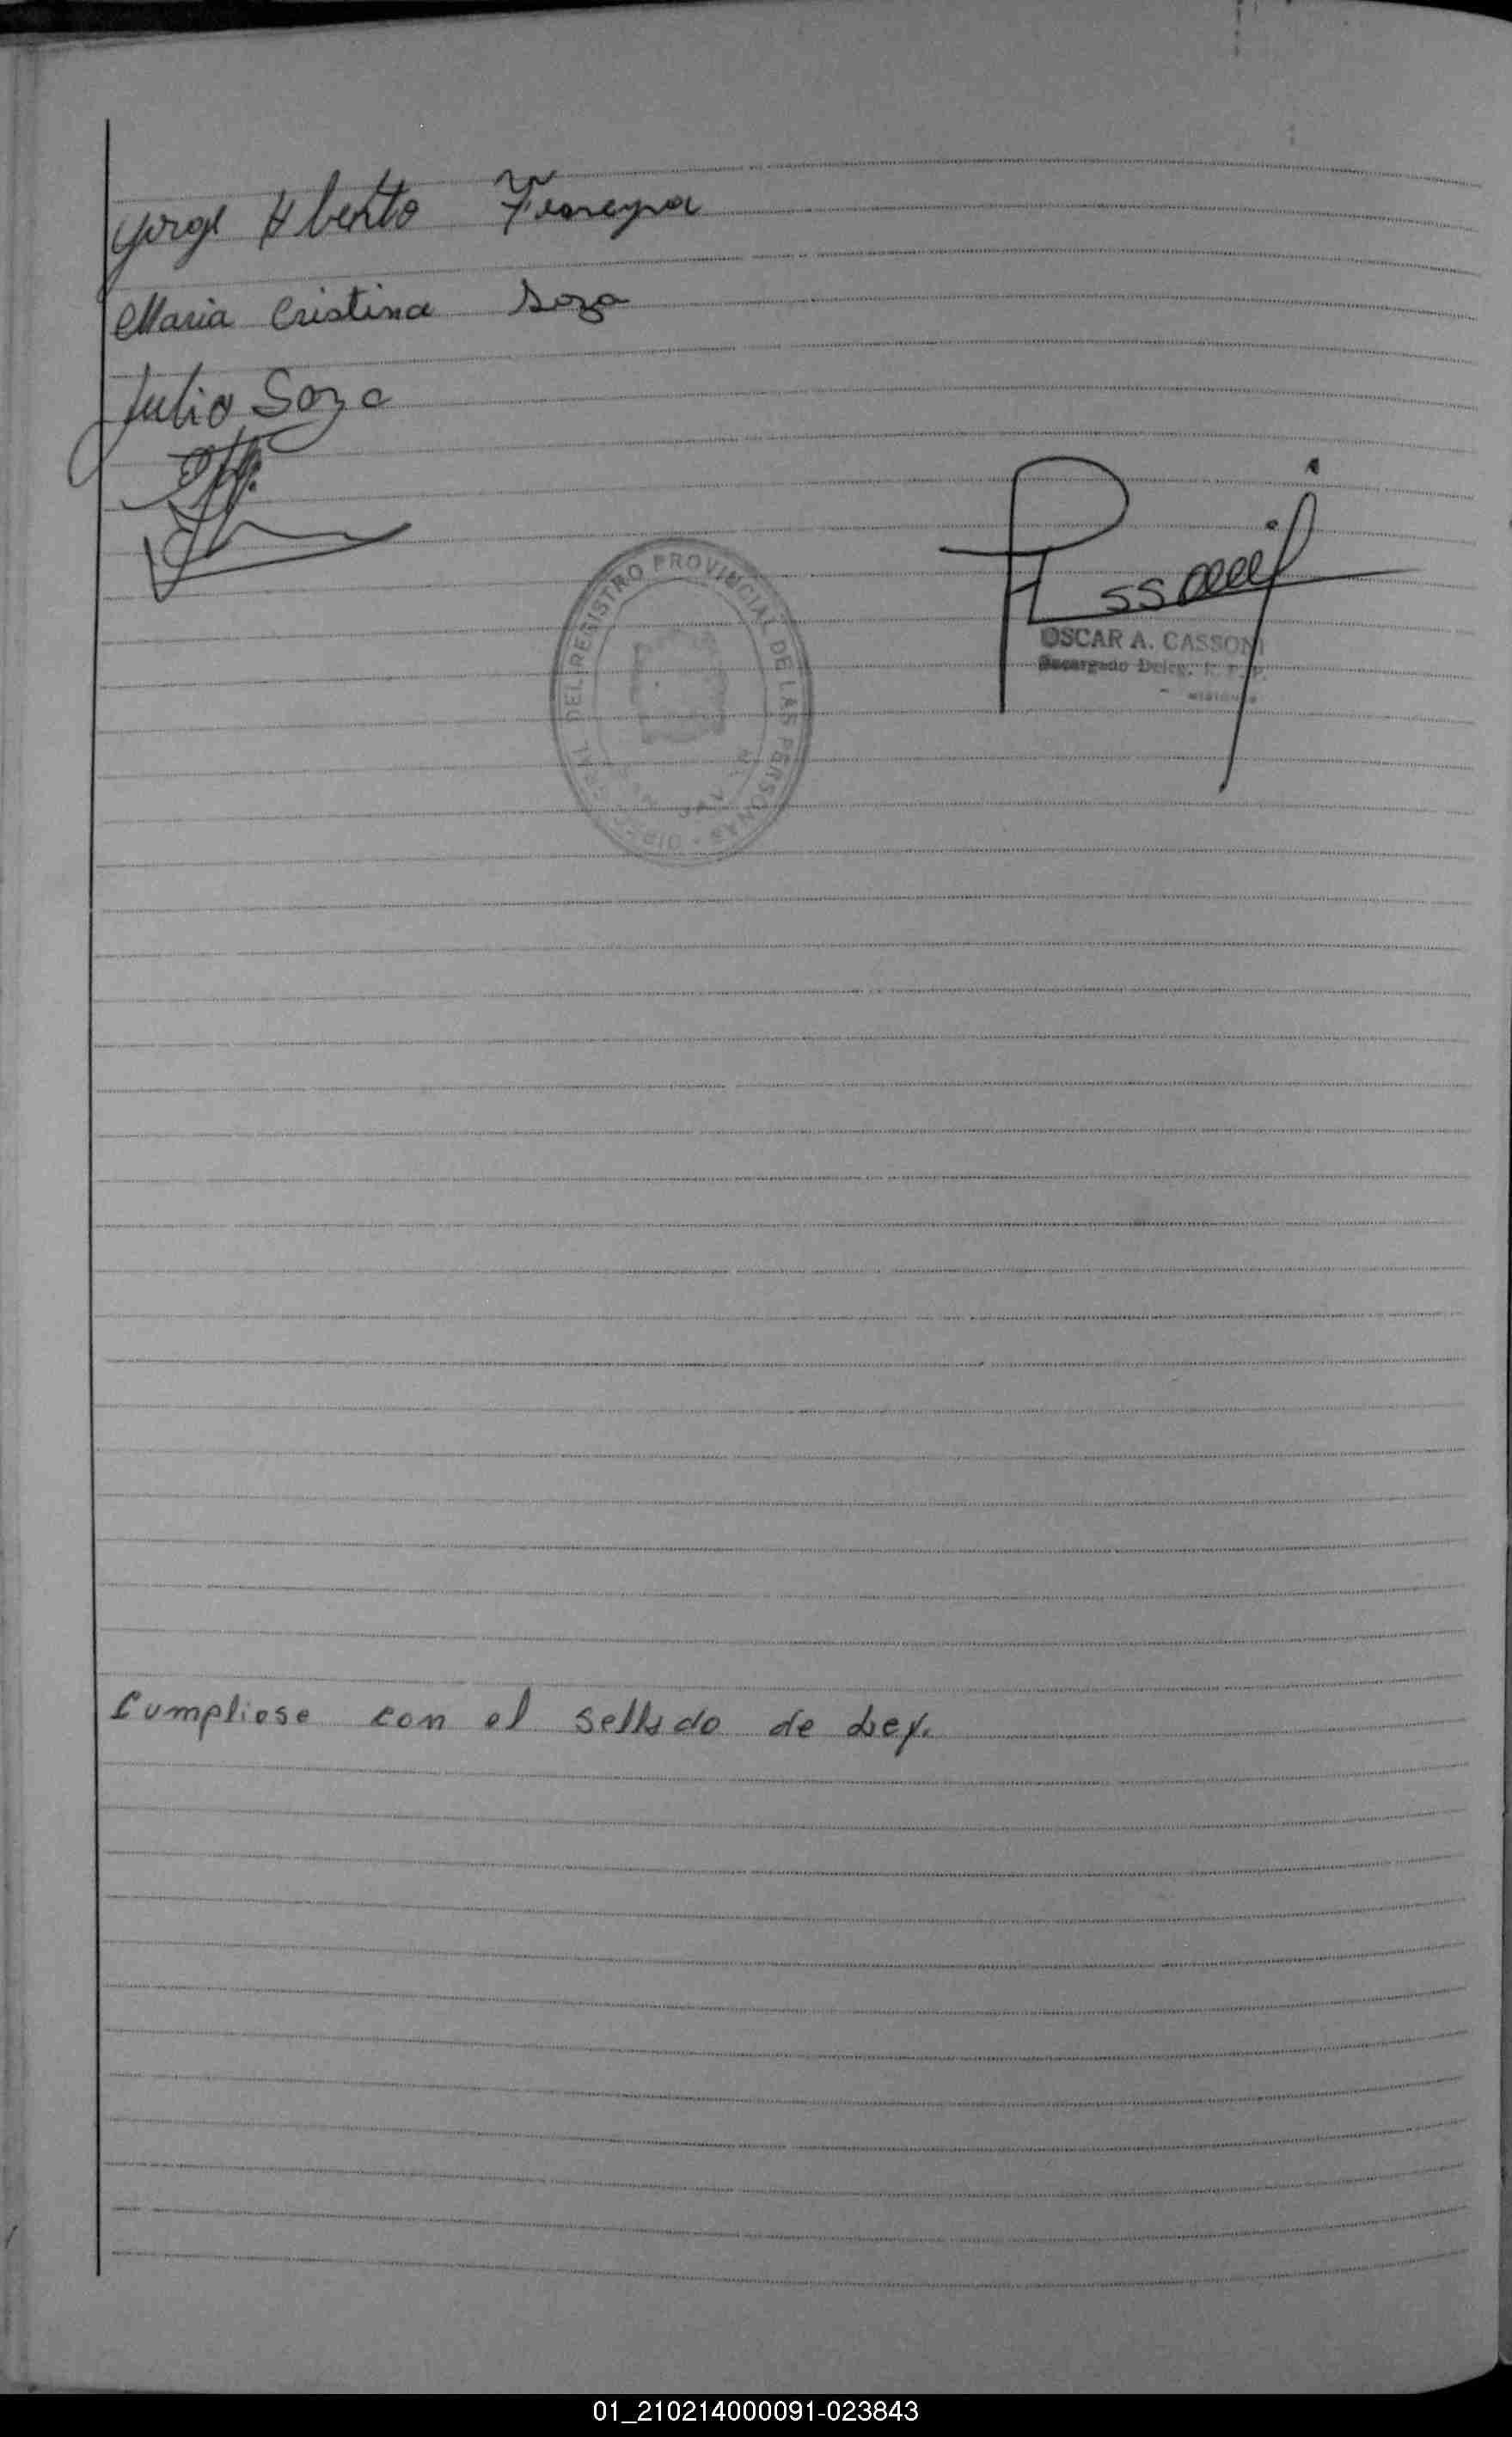 Jorge Alberto Ferreyra
Maria Cristina Soza
Julio Soza
DEL REGISTRO PROVINCIAL DE LAS PERSONAS
OSCAR A. CASSONI
Encargado Deleg. R. P. P.
Cumpliose con el sellado de Ley.
01_210214000091-023843